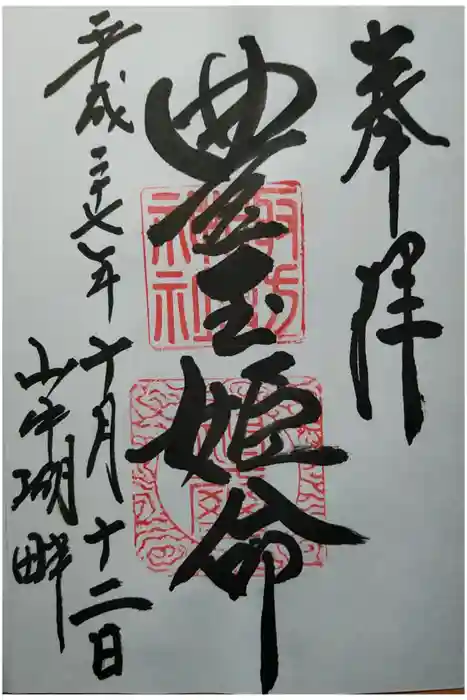 奉拝
豊玉姫命
平成二十七年十月十二日
山中湖畔